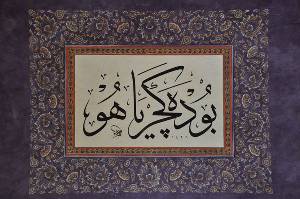 بُو دَه گَچَر یَا هُو